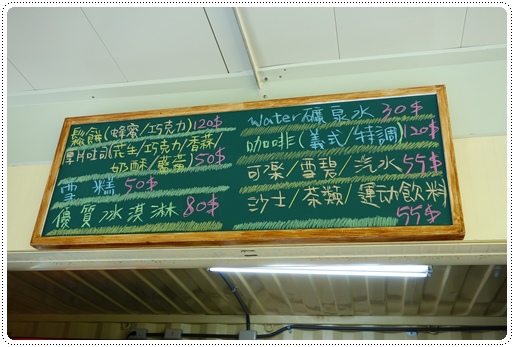 鬆餅(蜂蜜/巧克力)120$
厚片吐司(花生/巧克力/香蒜/
奶酥/薯黃)50$
雪糕50$
優質冰淇淋80$
Water礦泉水30$
咖啡(義式/特調)120$
可樂/雪碧/汽水55$
沙士/茶類/運动飲料
55$